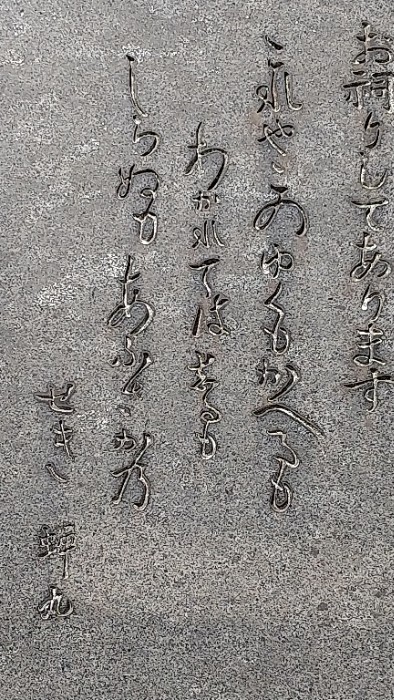 お祠りしてあります
これやこのゆくもかへるも
わかれてはしるも
しらぬも あふさかの
せき 蝉丸